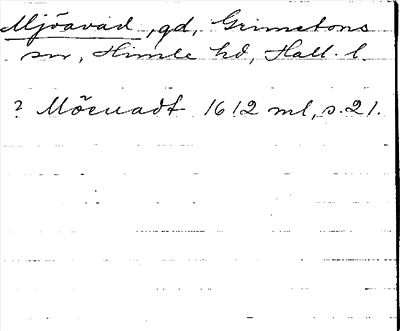 Mjöavad, gd, Grimetons
sn, Himle hd, Hall. l.
? Mõeuadt 1612 ml, s. 21.